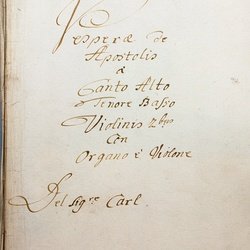 Vesperæ de
Apostolis
a
Canto Alto
Tenore Basso
Violinis 2bus
Con
Organo è Violone
Del Sigre Carl.